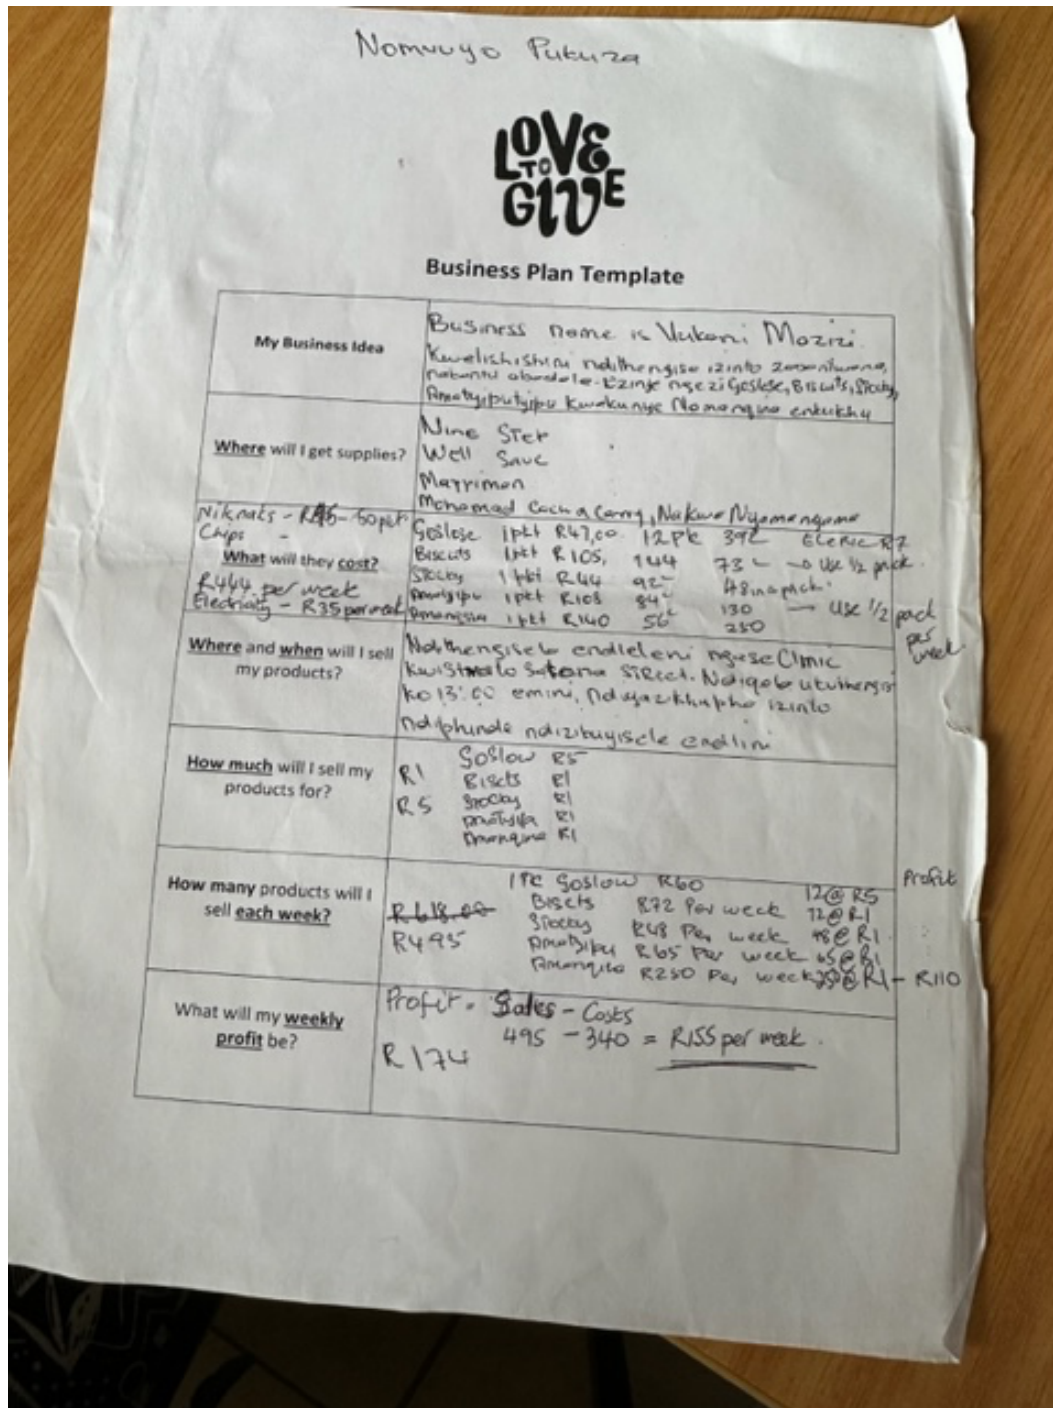 Nomvuyo Pukuza
LOVE
TO
GIVE
Business Plan Template
My Business Idea
Business name is Vukani Mozizi.
Kwelishishini ndithengise izinto zabantwana,
nabantu abadala. Ezinje ngezi Goslose, Biscuits, Stocky,
Amatyiputyipu kwakunye Namanqina enkukhu
Where will I get supplies?
Nine Ster
Well Save
Marriman
Mohamad Cach a Carry, Nakwa Nyamangama
Niknaks - R45 - 50pkt
Chips -
What will they cost?
R444 per week
Electricity - R35 per week
Goslose 1pkt R47,00. 12Pk 39c Elenic R7
Biscuts 1pkt R105, 144 73c → Use 1/2 pack.
Stocky 1pkt R44 92c 48 in a pack.
Amatyipu 1pkt R108 84c 130 → Use 1/2 pack per week.
Amanqina 1pkt R140 56c 250
Where and when will I sell my products?
Ndithengisela endleleni ngase Clinic
Satana Street. Ndiqala ukuthengisa
ko 13:00 emini, ndiyazikhapha izinto
ndiphinde ndizibuyisele endlini
How much will I sell my products for?
R1
R5
Goslow R5
Biscts R1
Stocky R1
Amatyipu R1
Amanqina R1
How many products will I sell each week?
R618.00
R495
Profit
1PK Goslow R60 12@R5
Biscts R72 Per week 72@R1
Stocky R48 Per week 48@R1
Amatyipu R65 Per week 65@R1
Amanqina R250 Per week 250@R1 - R110
What will my weekly profit be?
Profit = Sales - Costs
495 - 340 = R155 per week.
R174